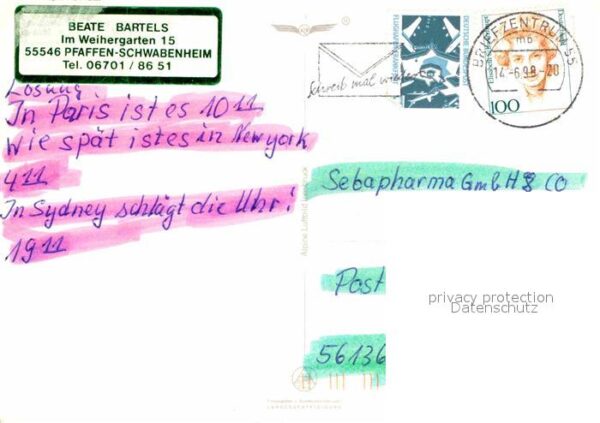 BEATE BARTELS
Im Weihergarten 15
55546 PFAFFEN-SCHWABENHEIM
Tel. 06701 / 86 51
Lösung
In Paris ist es 10 11
Wie spät ist es in New york
411
In Sydney schlägt die Uhr!
1911
Schreib mal wieder
FLUGHAFEN FRANKFURT
DEUTSCHE BUNDESPOST
100
BRIEFZENTRUM 55
mb
14.-6.98.-20
Sebapharma GmbH & CO
Post
56136
Alpine Luftbild Innsbruck
privacy protection
Datenschutz